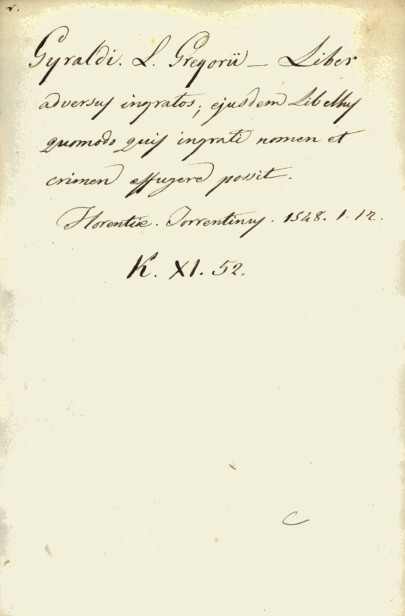 r.
Gyraldi. L. Gregorii - Liber
adversus ingratos; ejusdem Libellus
quomodo quis ingrati nomen et
crimen effugere possit.
Florentiæ. Torrentinus. 1548. 1. 12.
K. XI. 52.
C